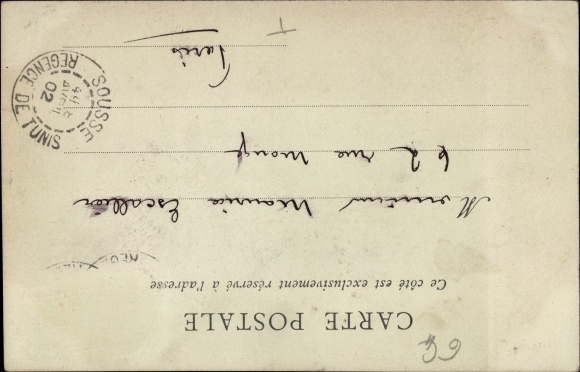 CARTE POSTALE
Ce côté est exclusivement réservé à l'adresse
Monsieur Maurice Escallier
62 rue Monge
Paris
SOUSSE
RÉGENCE DE TUNIS
02